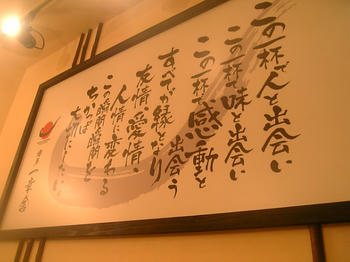 この一杯で人と出会い
この一杯で味と出会い
この一杯で感動と
出会う
すべてが縁となり
友情、愛情、
人情に変わる
この瞬間瞬間を
ちからっぱ
大切にしたい。